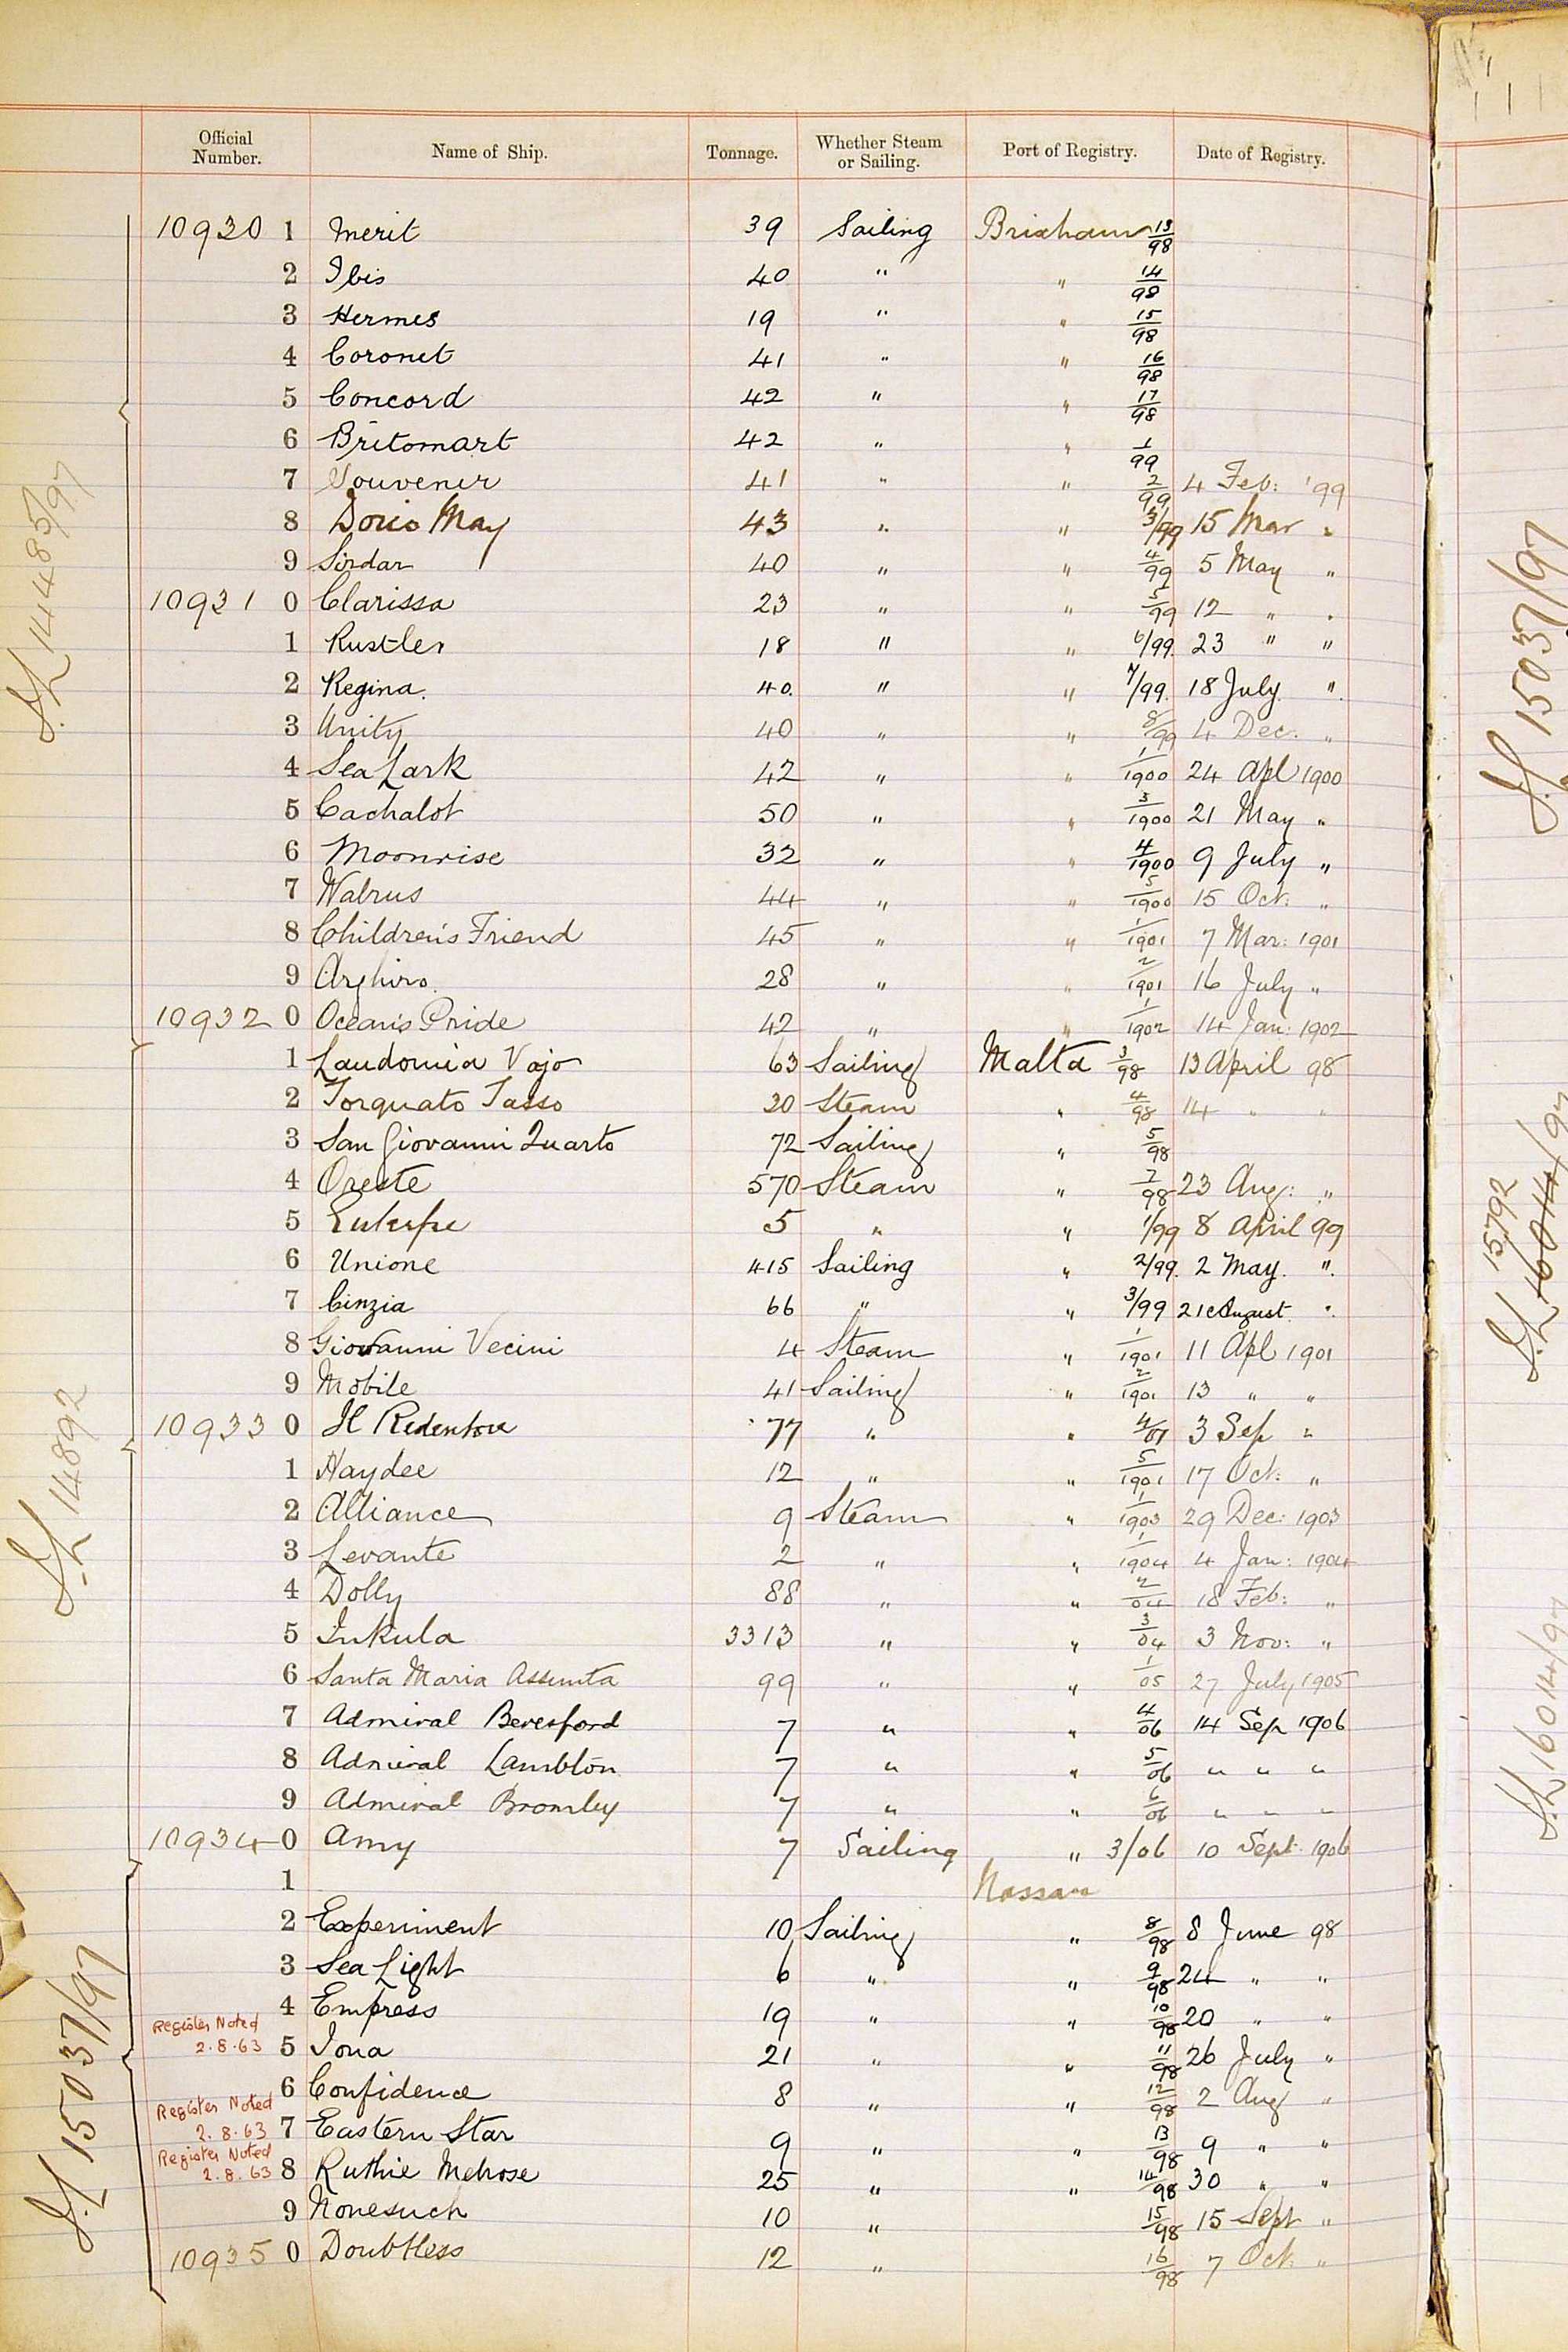 Official Number. Name of Ship. Tonnage. Whether Steam or Sailing. Port of Registry. Date of Registry.
10930 1 Merit 39 Sailing Brixham 13/98
2 Ibis 40 " " 14/98
3 Hermes 19 " " 15/98
4 Coronet 41 " " 16/98
5 Concord 42 " " 17/98
6 Britomart 42 " " 1/99
7 Souvenir 41 " " 2/99 4 Feb: '99
8 Doris May 43 " " 3/99 15 Mar "
9 Sirdar 40 " " 4/99 5 May "
10931 0 Clarissa 23 " " 5/99 12 " "
1 Rustler 18 " " 6/99 23 " "
2 Regina. 40. " " 7/99. 18 July "
3 Unity 40 " " 8/99 4 Dec. "
4 Sea Lark 42 " " 1/1900 24 Apl 1900
5 Cachalot 50 " " 3/1900 21 May "
6 Moonrise 32 " " 4/1900 9 July "
7 Walrus 44 " " 5/1900 15 Oct: "
8 Children's Friend 45 " " 1/1901 7 Mar: 1901
9 28 " " 2/1901 16 July "
10932 0 Ocean's Pride 42 " " 1/1902 14 Jan: 1902
1 Laudomia Vajo 63 Sailing Malta 3/98 13 April 98
2 Torquato Tasso 20 Steam " 4/98 14 " "
3 San Giovanni Quarto 72 Sailing " 5/98
4 Oreste 570 Steam " 7/98 23 Aug: "
5 Euterpe 5 " " 1/99 8 April 99
6 Unione 415 Sailing " 2/99. 2 May. "
7 Cinzia 66 " " 3/99 21 August "
8 Giovanni Vecini 4 Steam " 1/1901 11 Apl 1901
9 Mobile 41 Sailing " 2/1901 13 " "
10933 0 Il Redentore 77 " " 4/01 3 Sep "
1 Haydee 12 " " 5/1901 17 Oct: "
2 Alliance 9 Steam " 1/1903 29 Dec: 1903
3 Levante 2 " " 1/1904 4 Jan: 1904
4 Dolly 88 " " 2/04 18 Feb: "
5 Inkula 3313 " " 3/04 3 Nov: "
6 Santa Maria Assunta 99 " " 1/05 27 July 1905
7 Admiral Beresford 7 " " 4/06 14 Sep 1906
8 Admiral Lambton 7 " " 5/06 " " "
9 Admiral Bromley 7 " " 6/06 " " "
10934 0 Amy 7 Sailing " 3/06 10 Sept 1906
1 Nassau
2 Experiment 10 Sailing " 8/98 8 June 98
3 Sea Light 6 " " 9/98 24 " "
4 Empress 19 " " 10/98 20 " "
Register Noted
2.8.63 5 Iona 21 " " 11/98 26 July "
6 Confidence 8 " " 12/98 2 Aug "
Register Noted
2.8.63 7 Eastern Star 9 " " 13/98 9 " "
Register Noted
2.8.63 8 Ruthie Melrose 25 " " 14/98 30 " "
9 Nonesuch 10 " " 15/98 15 Sept "
10935 0 Doubtless 12 " " 16/98 7 Oct: "
14485/97
14892
15037/97
15037/97
15792
16014/97
16014/97